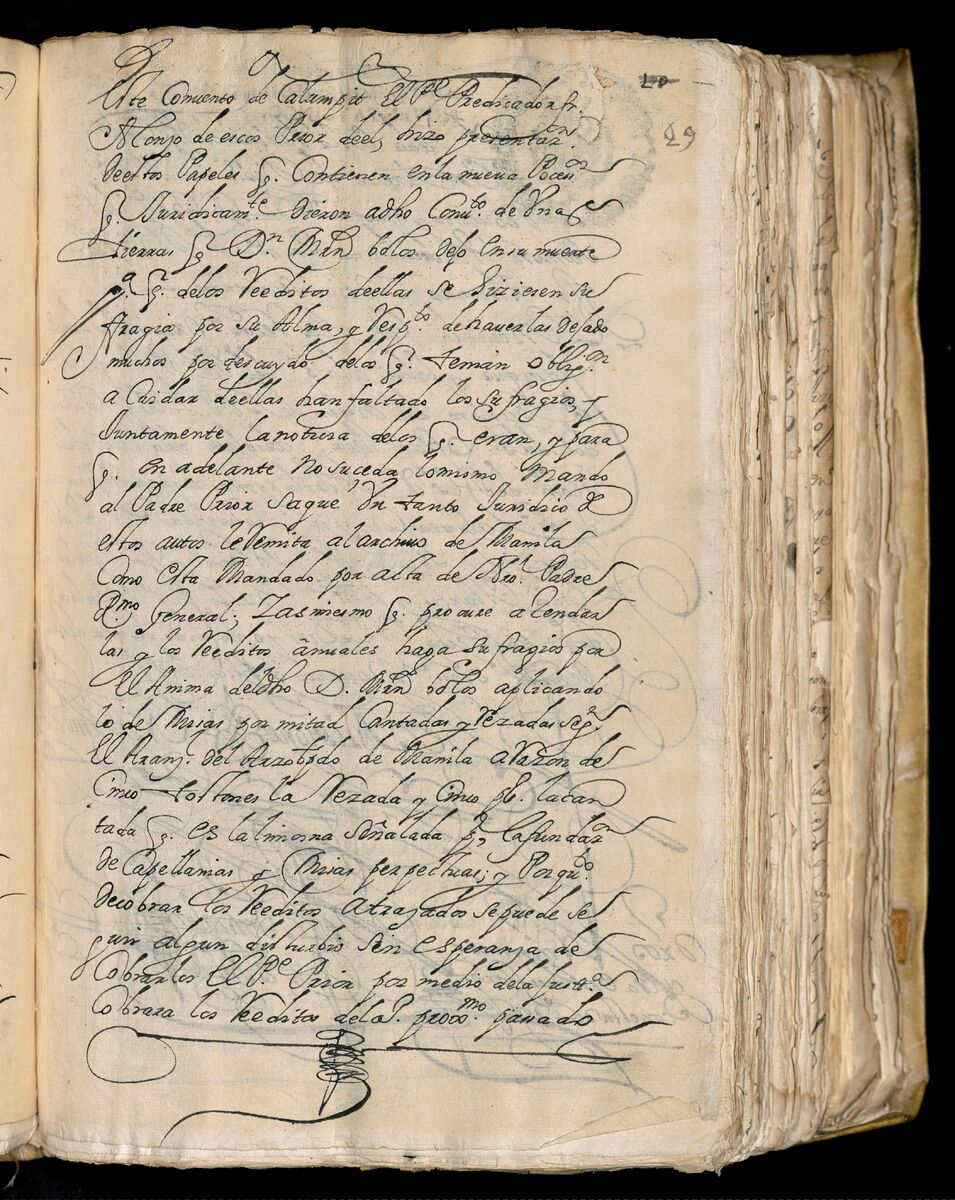 20
29
Este Convento de Calampit El Pe. Predicador fr.
Alonso de escos Prior deel, hizo presentaon.
deestos Papeles q. Contienen en la nueva Poceson.
q. Juridicamte. dieron adho Convto. de Vnas
tierras q. Dn. Man. bolos dexo en su muerte
pa. q. delos Redditos deellas se hiziesen su
fragios por su Alma, y respto. de haverlas dejado
muchos por descuydo delos q. tenian obligon.
a Cuidar deellas han faltado los sufragios, y
Juntamente la noticia delos q. eran, y para
q. en adelante no suceda lo mismo Mando
al Padre Prior saque Vn tanto Juridico de
estos autos le Remita al archivo de Manila
Como esta Mandado por alta de Nro. Padre
Rmo. General; Y asimesmo q. procure arendar
las y los Redditos anuales haga sufragios por
El Anima deldho D. Man. bolos aplicando
lo de Misas por mitad Cantadas y Rezadas segn.
El Aranz. del Arzobpdo de Manila a Razon de
Cinco tostones la Rezada y Cinco ps. la can
tada q. es la limosna señalada pa. la fundaon.
de Capellanias y Misas perpectuas; y Porqto.
de cobrar los Redditos Atrazados se puede se
guir algun disturbio sin esperanza de
Cobrarlos El Pe. Prior por medio dela Justta.
Cobrara los Redditos del a. proxmo. pasado